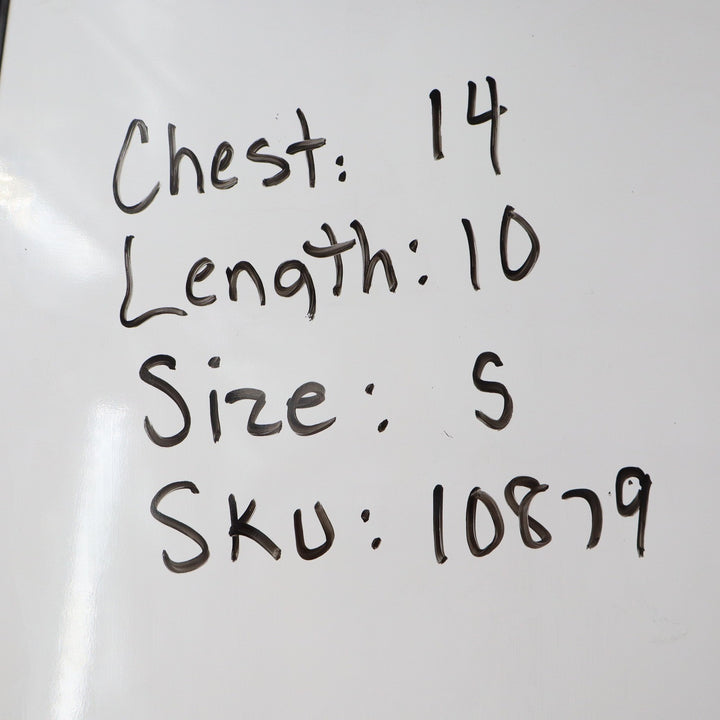 Chest: 14
Length: 10
Size: S
SKU: 10879